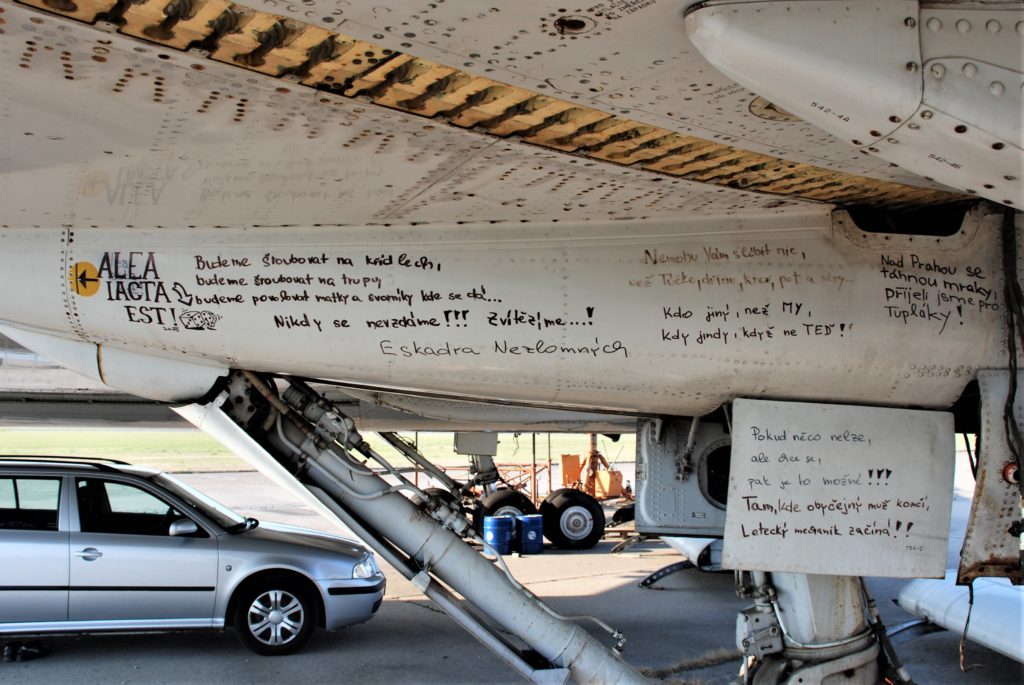 ALEA
IACTA
EST!
Budeme šroubovat na křídlech,
budeme šroubovat na trupu,
budeme povolovat matky a svorníky kde se dá...
Nikdy se nevzdáme!!! Zvítězíme...!
Eskadra Nezlomných
Nemohu Vám slíbit nic,
než Túčka, dřím, krev, pot a slzy
Kdo jiný, než MY,
Kdy jindy, když ne TEĎ!!
Nad Prahou se
táhnou mraky,
přijeli jsme pro
Tupláky!
Pokud něco nelze,
ale chce se,
pak je to možné!!!
Tam, kde obyčejný muž končí,
Letecký mechanik začíná!!
734-2
542-4A
542-4B